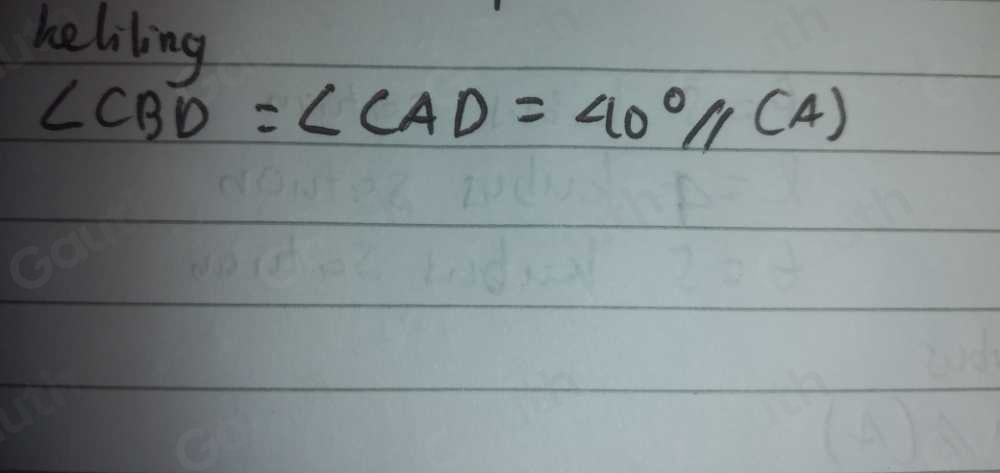 keliling
∠CBD = ∠CAD = 40° // (A)